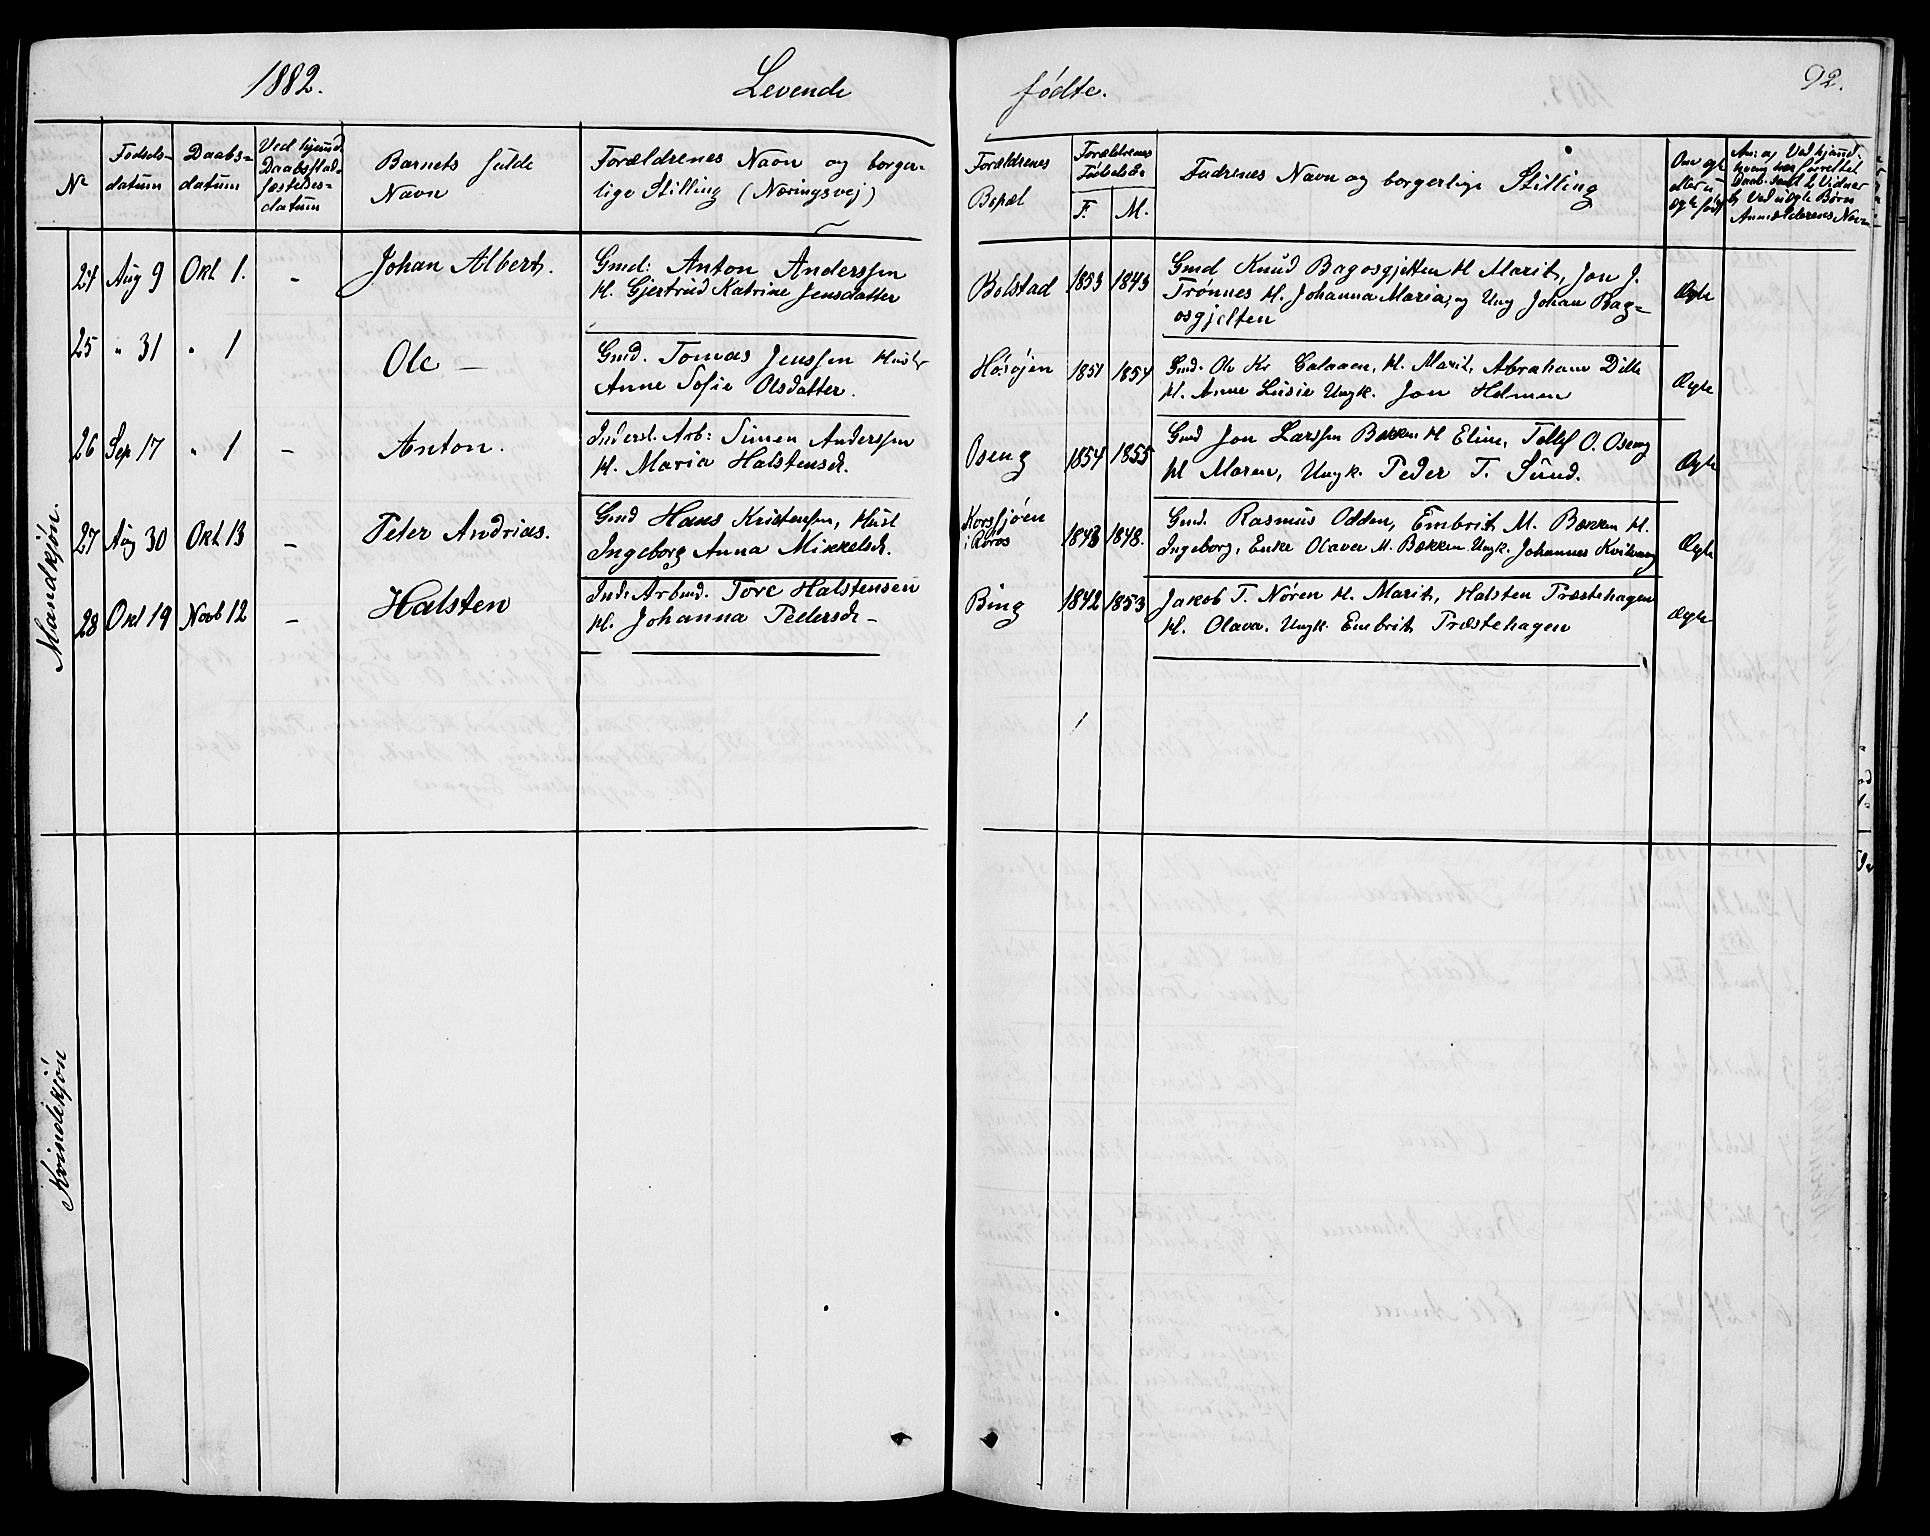 1882.
Levende
fødte.
92.
No
Fødsels-
datum
Daabs-
datum
Ved hjemd.
Daabsstad-
fæstelses-
datum
Barnets fulde
Navn
Forældrenes Navn og borger-
lige Stilling (Næringsvej)
Forældrenes
Bopæl
Forældrenes
Fødselsår
F.
M.
Fadrenes Navn og borgerlige Stilling
Om ægte
eller u-
ægte født
Mandkjøn.
24 Aug 9 Okt 1. - Johan Albert.
Gmd: Anton Anderssen
H. Gjertrud Katrine Jensdatter
Bolstad 1853 1843
Gmd Knud Bagosgjetten H Marit, Jon J.
Trønnes H. Johanna Maria, og Ung Johan Bag-
osgjelten
Ægte
25 " 31 " 1 Ole -
Gmd. Tomas Jenssen Hustr
Anne Sofie Olsdatter.
Høsøjen 1851 1854
Gmd. Ole Kr H. Marit, Abraham Ditto
H. Anne Lusie Ungk. Jon Holmen
Ægte
26 Sep 17 " 1 - Anton.
Inderst. Arb: Simen Anderssen
H. Maria Halstensd.
Oseng 1854 1855
Gmd Jon Larssen Bakken H Eline, Tollef O. Oseng
H Maren, Ungk. Peder T. Sund.
Ægte
27 Aug 30 Okt 13 - Peter Andrias.
Gmd Hans Kristensen, Hust
Ingeborg Anna Mikkelsd.
Korssjøen
i Røros
1843 1848.
Gmd. Rasmus Odden, Embrit M. Bækken H.
Ingeborg, Enke Olava M. Bækken Ungk. Johannes Kvilvang
Ægte
28 Okt 19 Novb 12 - Halsten
Ind. Arbmd. Tore Halstensen
H. Johanna Pedersd -
Bing 1842 1853
Jakob T. Nøren H. Marit, Halsten Præstehagen
H. Olava. Ungk. Embrit Præstehagen
ægte
Kvindekjøn